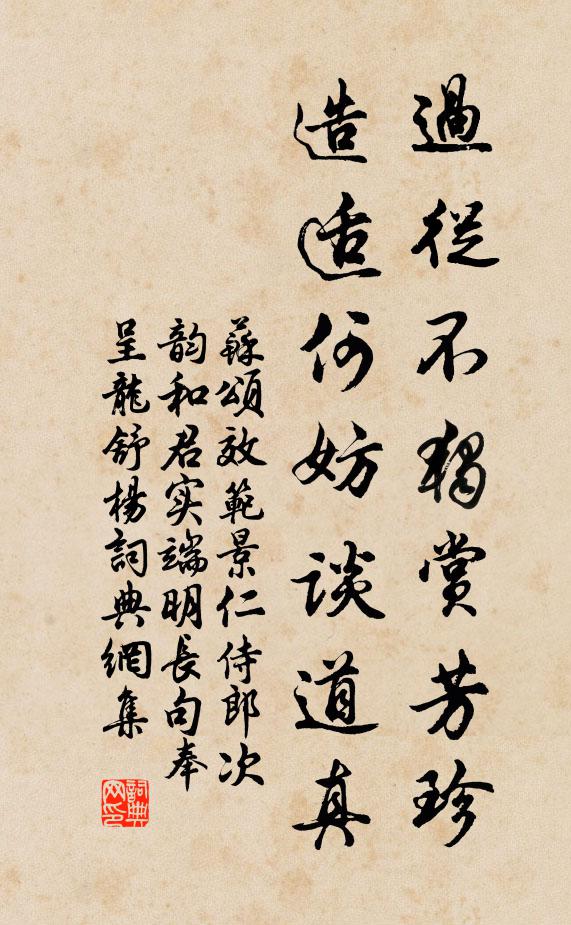 過從不獨賞芳珍
造适何妨談道真
蘇頌效範景仁侍郎次
韵和君实端明長句奉
呈龍舒楊詞典網集
詞典网印